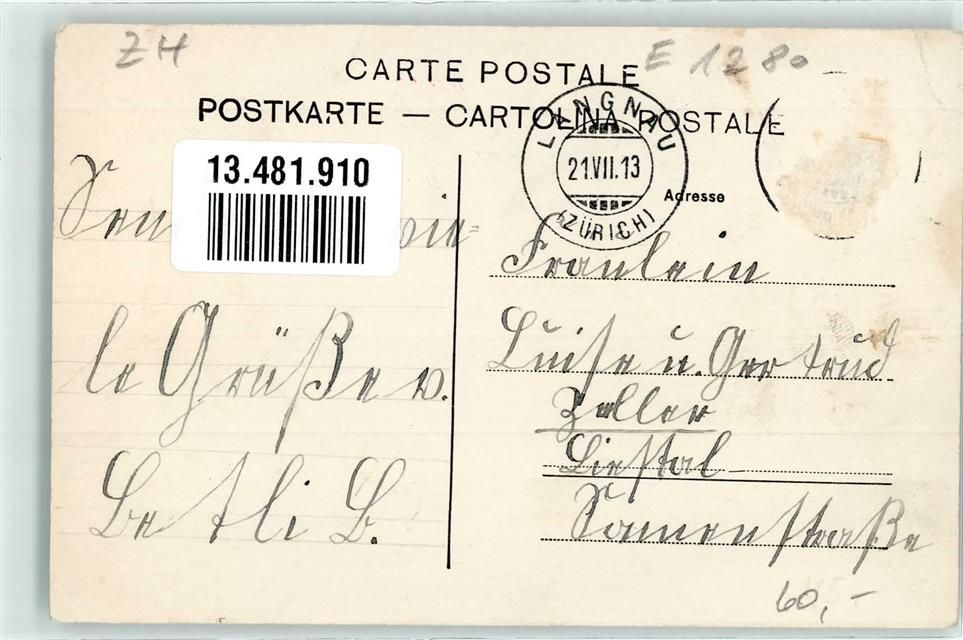 ZH
E 1280
CARTE POSTALE
POSTKARTE — CARTOLINA POSTALE
LANGNAU
21.VII.13
(ZÜRICH)
13.481.910
Adresse
vie=
le Grüße v.
Betli B.
Fräulein
Luise u. Gertrud
Zeller
Liestal
60,-